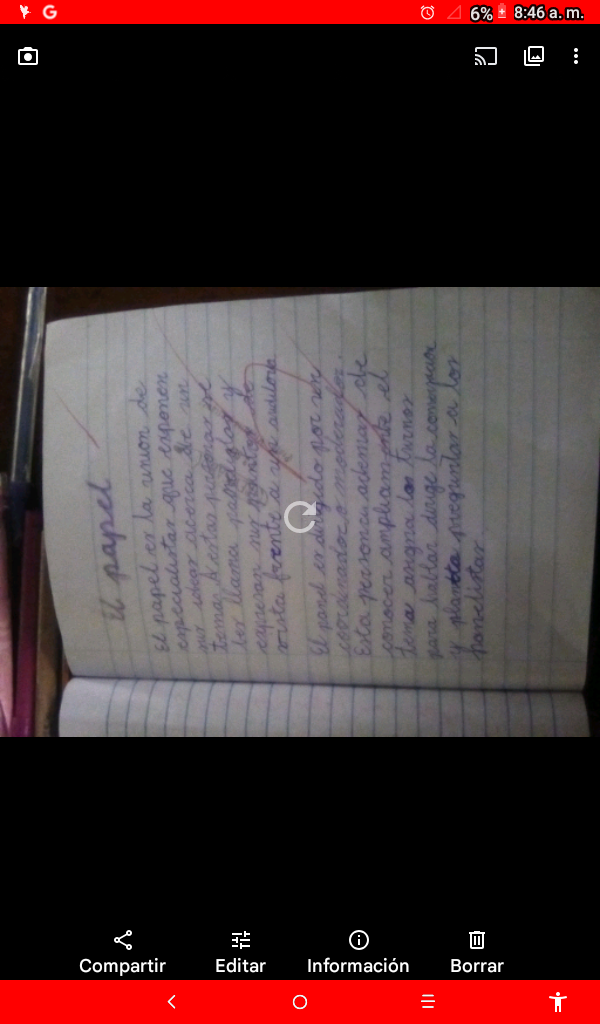 6% 8:46 a. m.
El papel
El papel es la union de
especialistas que exponen
sus ideas acerca de un
tema. A estas personas se
les llama panelistas y
expresan sus puntos de
vista frente a un auditorio
El panel es dirigido por un
coordinador o moderador.
Esta persona ademas de
conocer ampliamente el
tema asigna los turnos
para hablar dirige la
y plantea preguntas a los
panelistas
Compartir Editar Información Borrar